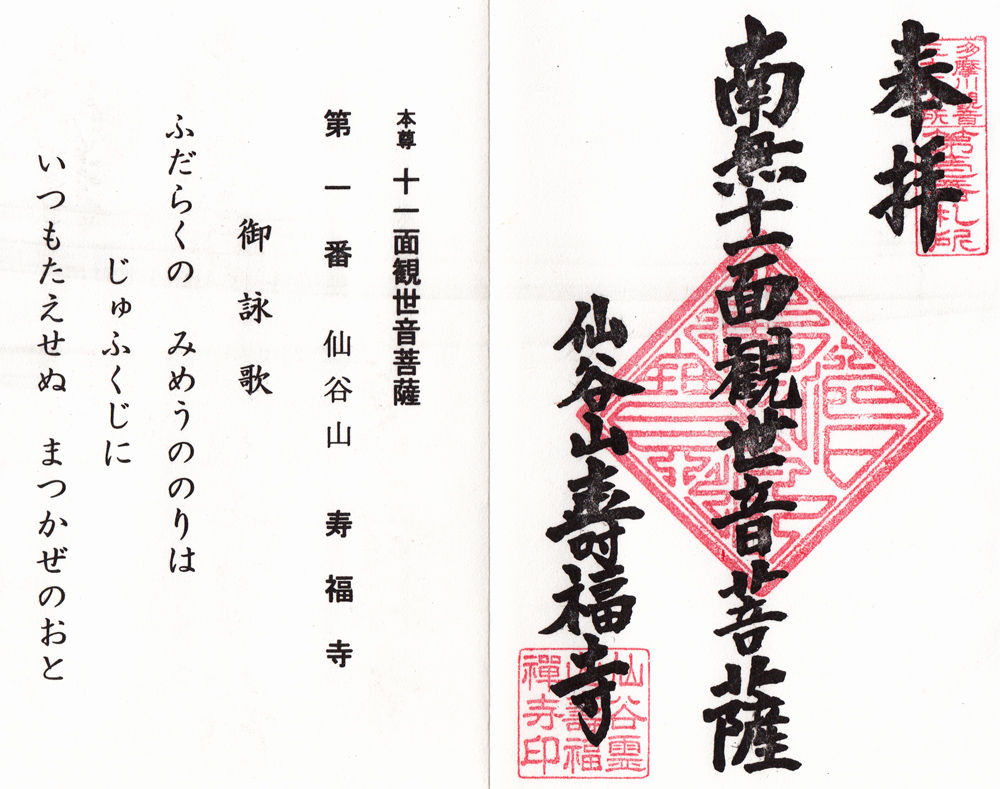 奉拝
南無十一面観世音菩薩
仙谷山寿福寺
多摩川観音
第壱番札所
仙谷霊
山壽福
禅寺印
本尊 十一面観世音菩薩
第一番 仙谷山 寿福寺
御詠歌
ふだらくの みめうののりは
じゅふくじに
いつもたえせぬ まつかぜのおと